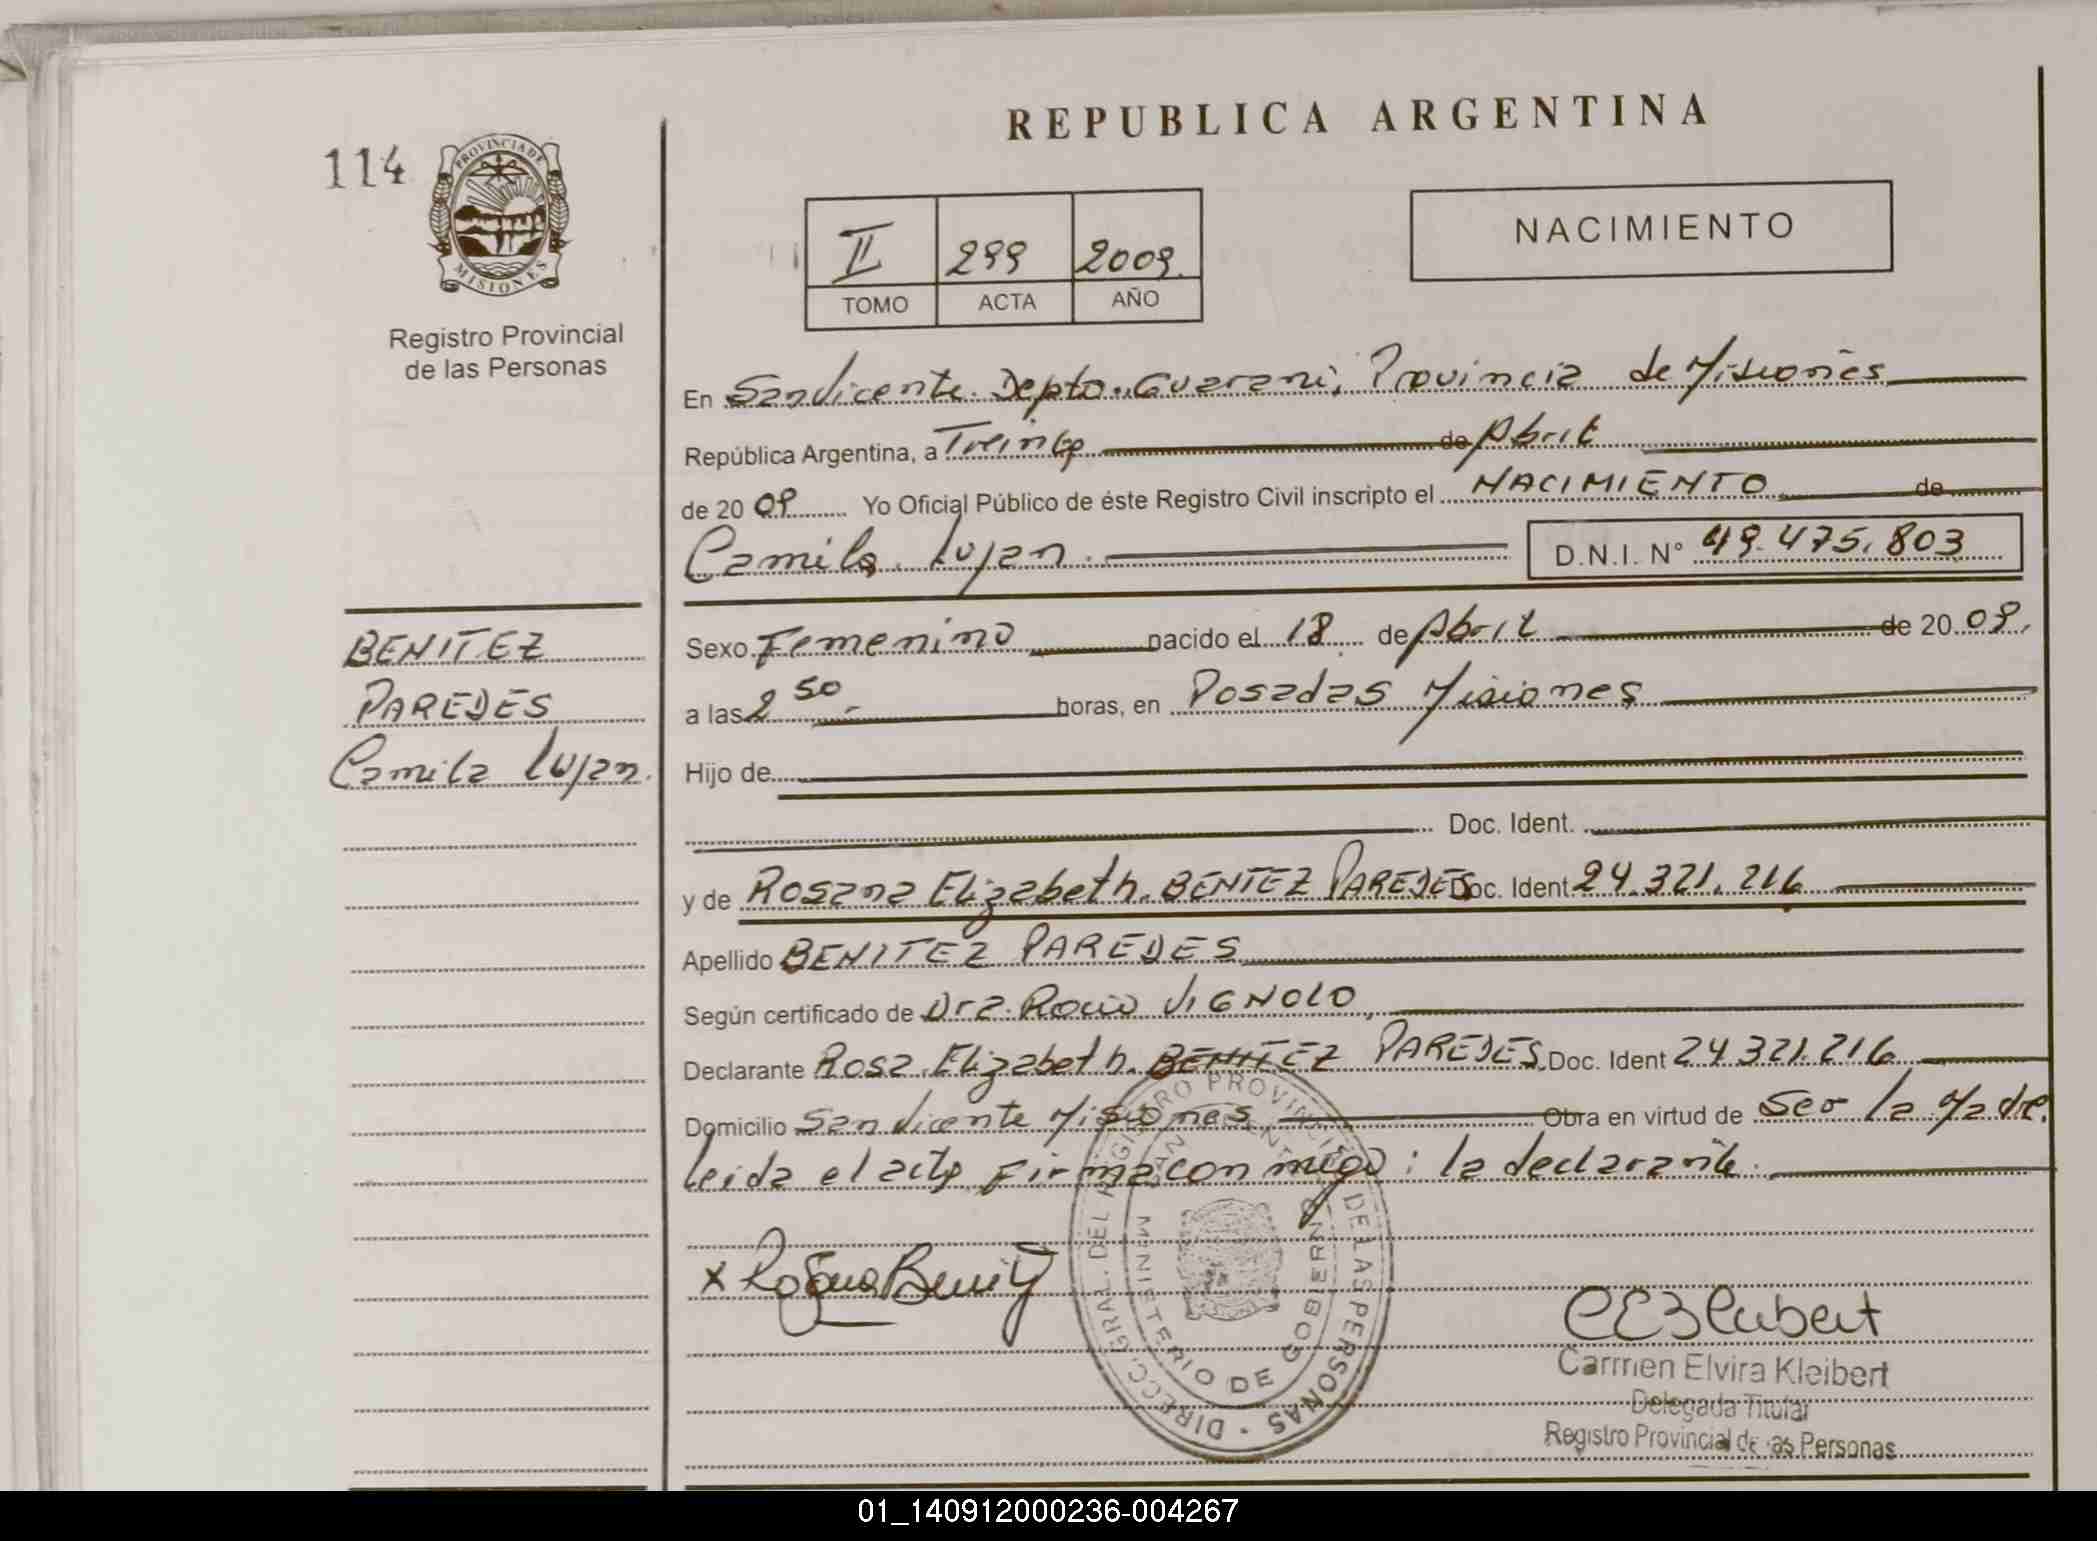 REPUBLICA ARGENTINA
114
PROVINCIA DE
MISIONES
Registro Provincial
de las Personas
NACIMIENTO
II 299 2009
TOMO ACTA AÑO
En San Vicente. Depto. Guarani, Provincia de Misiones
República Argentina, a Treinta de Abril
de 20 09 Yo Oficial Público de éste Registro Civil inscripto el NACIMIENTO de
Camila Lujan. D.N.I. N° 49.475.803
BENITEZ
PAREDES
Camila Lujan.
Sexo Femenino nacido el 18 de Abril de 20 09.
a las 2 50 horas, en Posadas Misiones
Hijo de
Doc. Ident.
y de Rosana Elizabeth. BENITEZ PAREDES Doc. Ident 24.321.216
Apellido BENITEZ PAREDES
Según certificado de Dra. Rocio VIGNOLO
Declarante Rosa Elizabeth. BENITEZ PAREDES Doc. Ident 24 321.216
Domicilio San Vicente Misiones Obra en virtud de Ser la Madre.
Leida el acta firma con migo: la declarante.
x Rosana Benitez
DIRECC. GRAL. DEL REGISTRO PROVINCIAL DE LAS PERSONAS
SAN VICENTE
MINISTERIO DE GOBIERNO
CEKleibert
Carmen Elvira Kleibert
Delegada Titular
Registro Provincial de las Personas
01_140912000236-004267